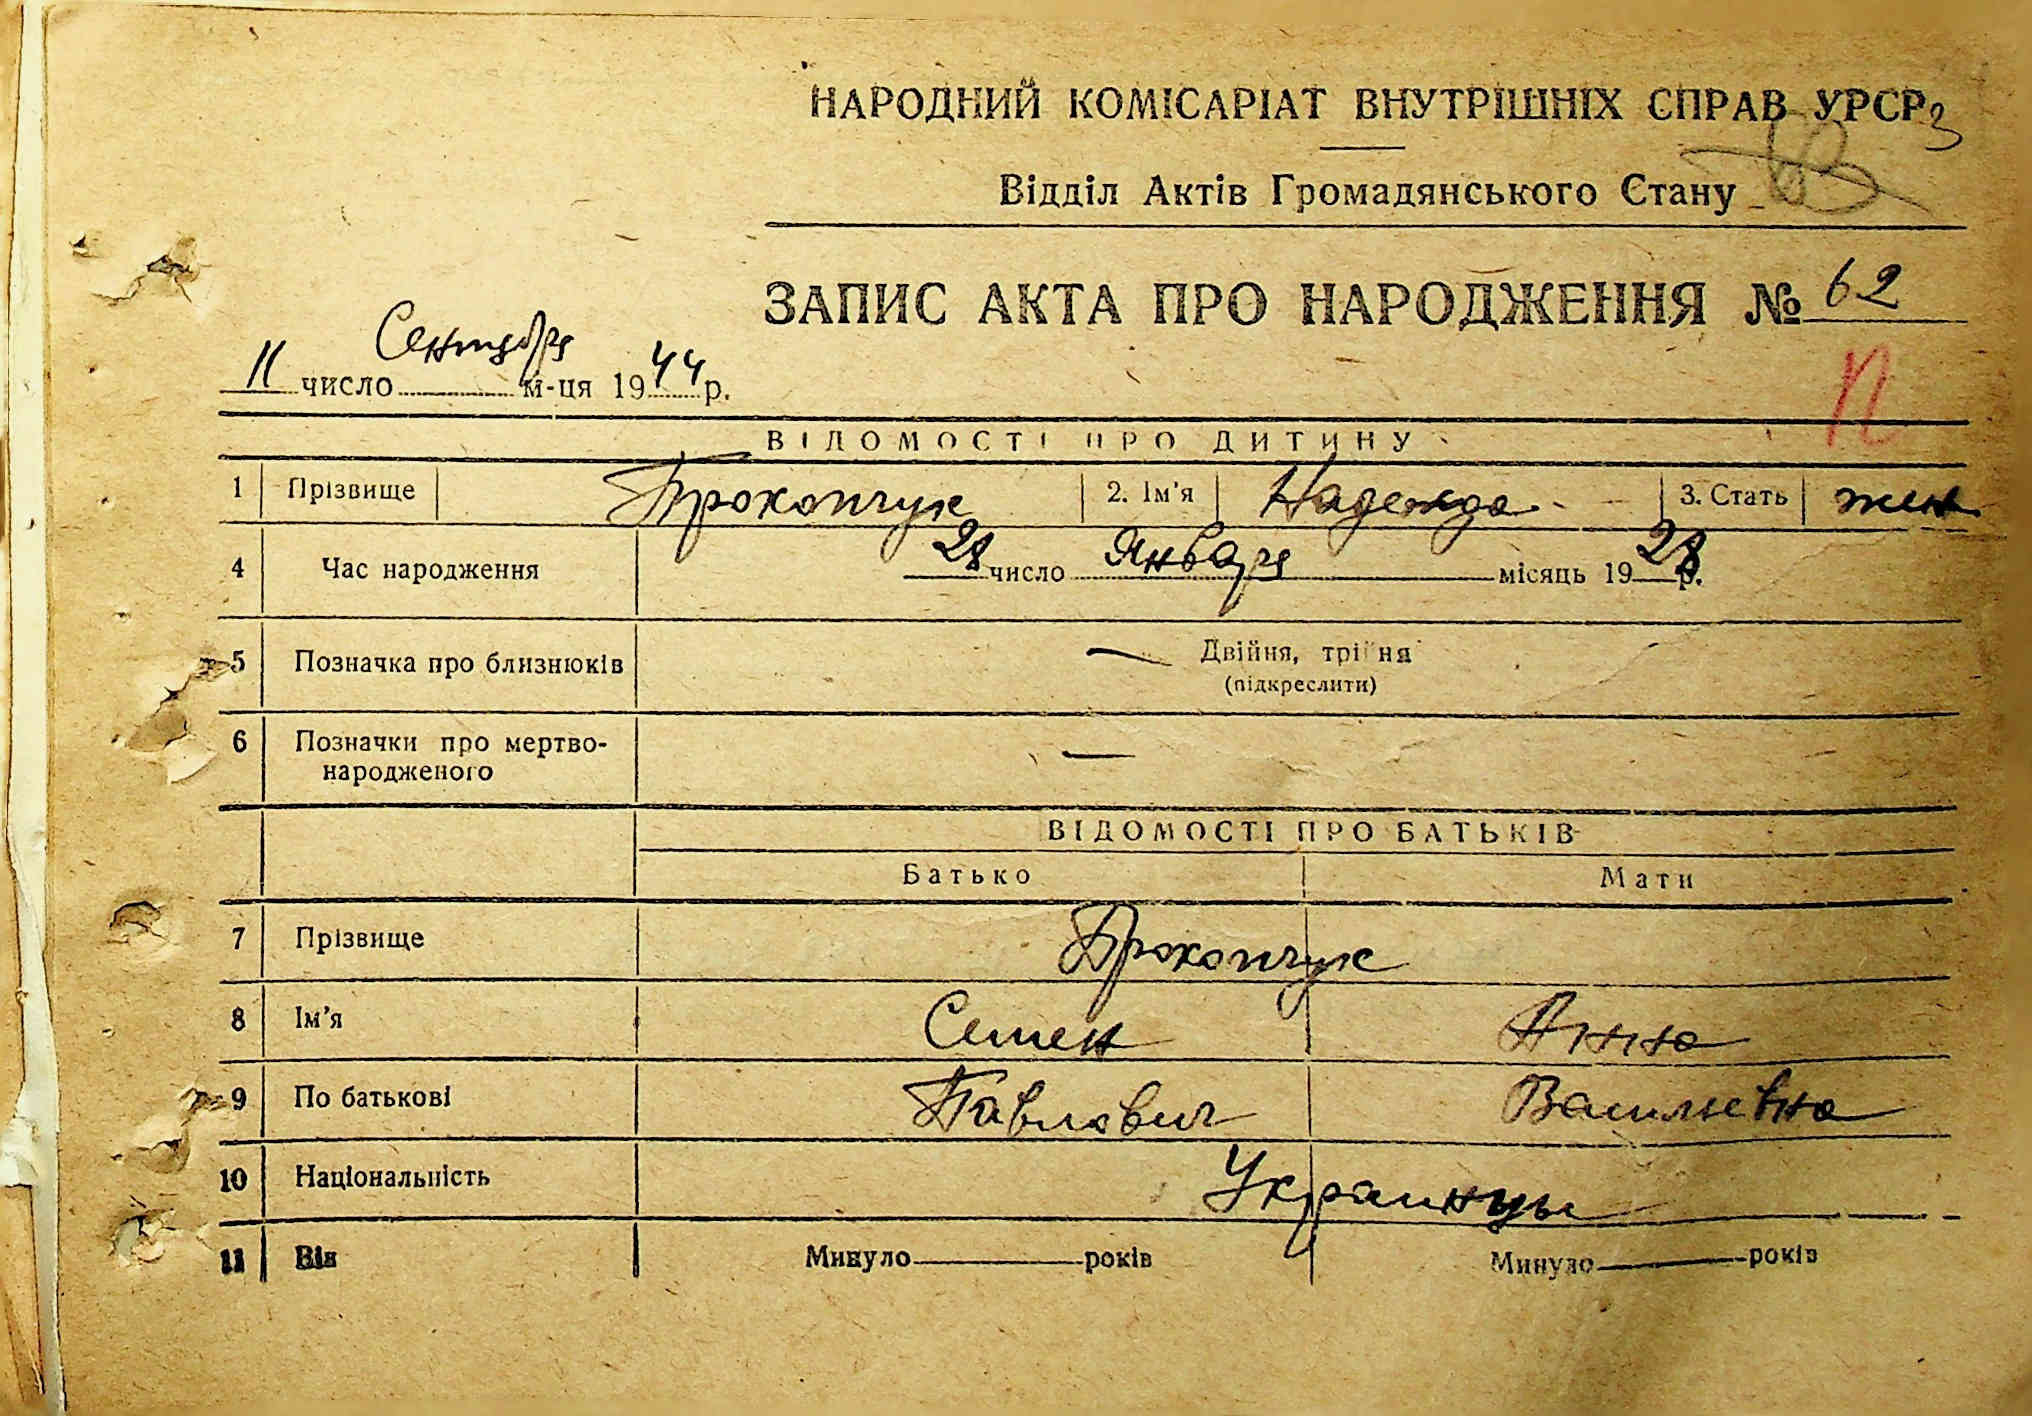 НАРОДНИЙ КОМІСАРІАТ ВНУТРІШНІХ СПРАВ УРСР
Відділ Актів Громадянського Стану
ЗАПИС АКТА ПРО НАРОДЖЕННЯ № 62
11 число Сентября м-ця 1944 р.
П
ВІДОМОСТІ ПРО ДИТИНУ
1 Прізвище Прокопчук 2. Ім'я Надежда 3. Стать жен
4 Час народження 28 число Января місяць 1928 р.
5 Позначка про близнюків — Двійня, трійня
(підкреслити)
6 Позначки про мертво-
народженого —
ВІДОМОСТІ ПРО БАТЬКІВ
Батько Мати
7 Прізвище Прокопчук
8 Ім'я Семен Анна
9 По батькові Павлович Васильевна
10 Національність Украинцы
11 Вік Минуло — років Минуло — років